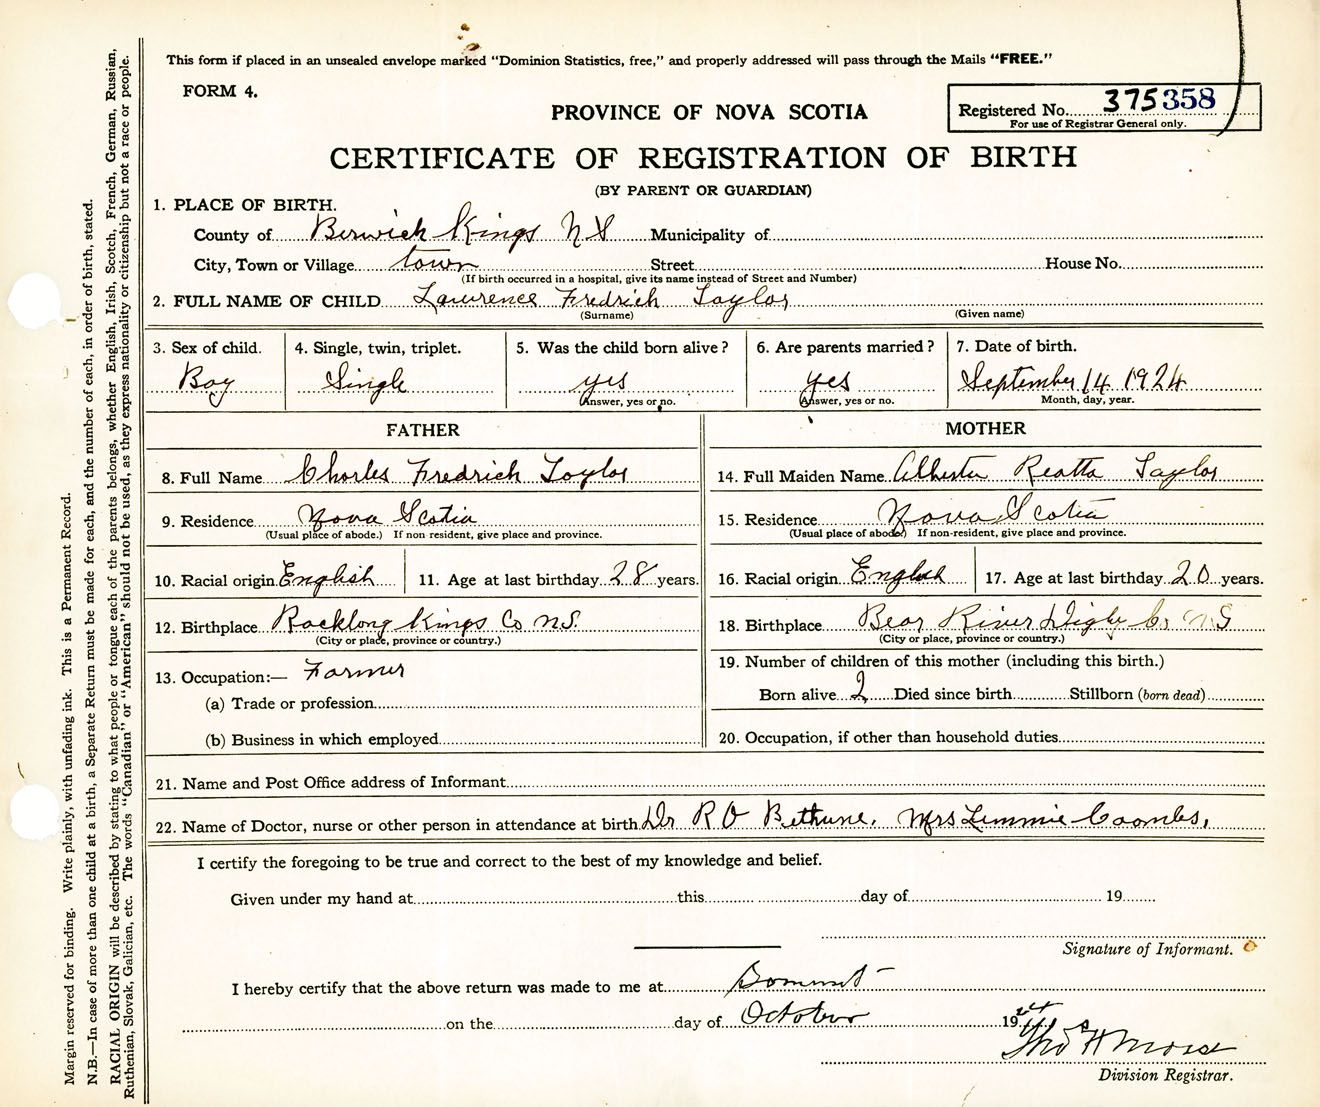 This form if placed in an unsealed envelope marked "Dominion Statistics, free," and properly addressed will pass through the Mails "FREE."
FORM 4.
PROVINCE OF NOVA SCOTIA
Registered No. 375358
For use of Registrar General only.
CERTIFICATE OF REGISTRATION OF BIRTH
(BY PARENT OR GUARDIAN)
1. PLACE OF BIRTH.
County of Berwick Kings N S Municipality of
City, Town or Village town Street House No.
(If birth occurred in a hospital, give its name instead of Street and Number)
2. FULL NAME OF CHILD Lawrence Fredrich Taylor
(Surname) (Given name)
3. Sex of child. 4. Single, twin, triplet. 5. Was the child born alive? 6. Are parents married? 7. Date of birth.
Boy Single yes yes September 14 1924
Answer, yes or no. Answer, yes or no. Month, day, year.
FATHER MOTHER
8. Full Name Charles Fredrich Taylor 14. Full Maiden Name Alberta Reatta Taylor
9. Residence Nova Scotia 15. Residence Nova Scotia
(Usual place of abode.) If non-resident, give place and province. (Usual place of abode.) If non-resident, give place and province.
10. Racial origin English 11. Age at last birthday 28 years. 16. Racial origin English 17. Age at last birthday 20 years.
12. Birthplace Kings Co N.S. 18. Birthplace Bear River Digby Co N S
(City or place, province or country.) (City or place, province or country.)
13. Occupation:— Farmer 19. Number of children of this mother (including this birth.)
(a) Trade or profession Born alive 2 Died since birth Stillborn (born dead)
(b) Business in which employed 20. Occupation, if other than household duties
21. Name and Post Office address of Informant
22. Name of Doctor, nurse or other person in attendance at birth Dr R O Bethune, Mrs Coombs,
I certify the foregoing to be true and correct to the best of my knowledge and belief.
Given under my hand at this day of 19
Signature of Informant.
I hereby certify that the above return was made to me at Somerset
on the day of October 1924
Thos H Morse
Division Registrar.
Margin reserved for binding. Write plainly, with unfading ink. This is a Permanent Record.
N.B.—In case of more than one child at a birth, a Separate Return must be made for each, and the number of each, in order of birth, stated.
RACIAL ORIGIN will be described by stating to what people or tongue each of the parents belongs, whether English, Irish, Scotch, French, German, Russian,
Ruthenian, Slovak, Galician, etc. The words "Canadian" or "American" should not be used, as they express nationality or citizenship but not a race or people.